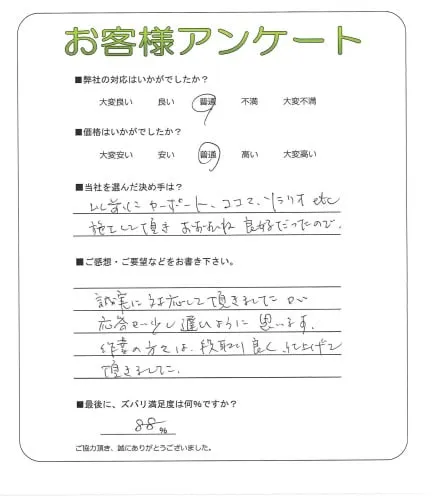 お客様アンケート
■弊社の対応はいかがでしたか?
大変良い 良い 普通 不満 大変不満
■価格はいかがでしたか?
大変安い 安い 普通 高い 大変高い
■当社を選んだ決め手は?
以前に カーポート、ココマ、ソラリオ etc
施工して頂き おおむね 良好だったので、
■ご感想・ご要望などをお書き下さい。
誠実に対応して頂きましたが
応答が少し遅いように思います。
作業の方々は、段取り良く、仕上げて
頂きました。
■最後に、ズバリ満足度は何%ですか?
88%
ご協力頂き、誠にありがとうございました。